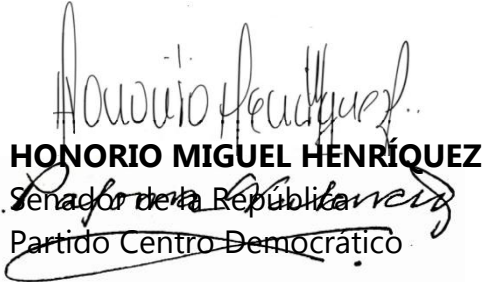 Honorio Henríquez
HONORIO MIGUEL HENRÍQUEZ
Senador de la República
Partido Centro Democrático